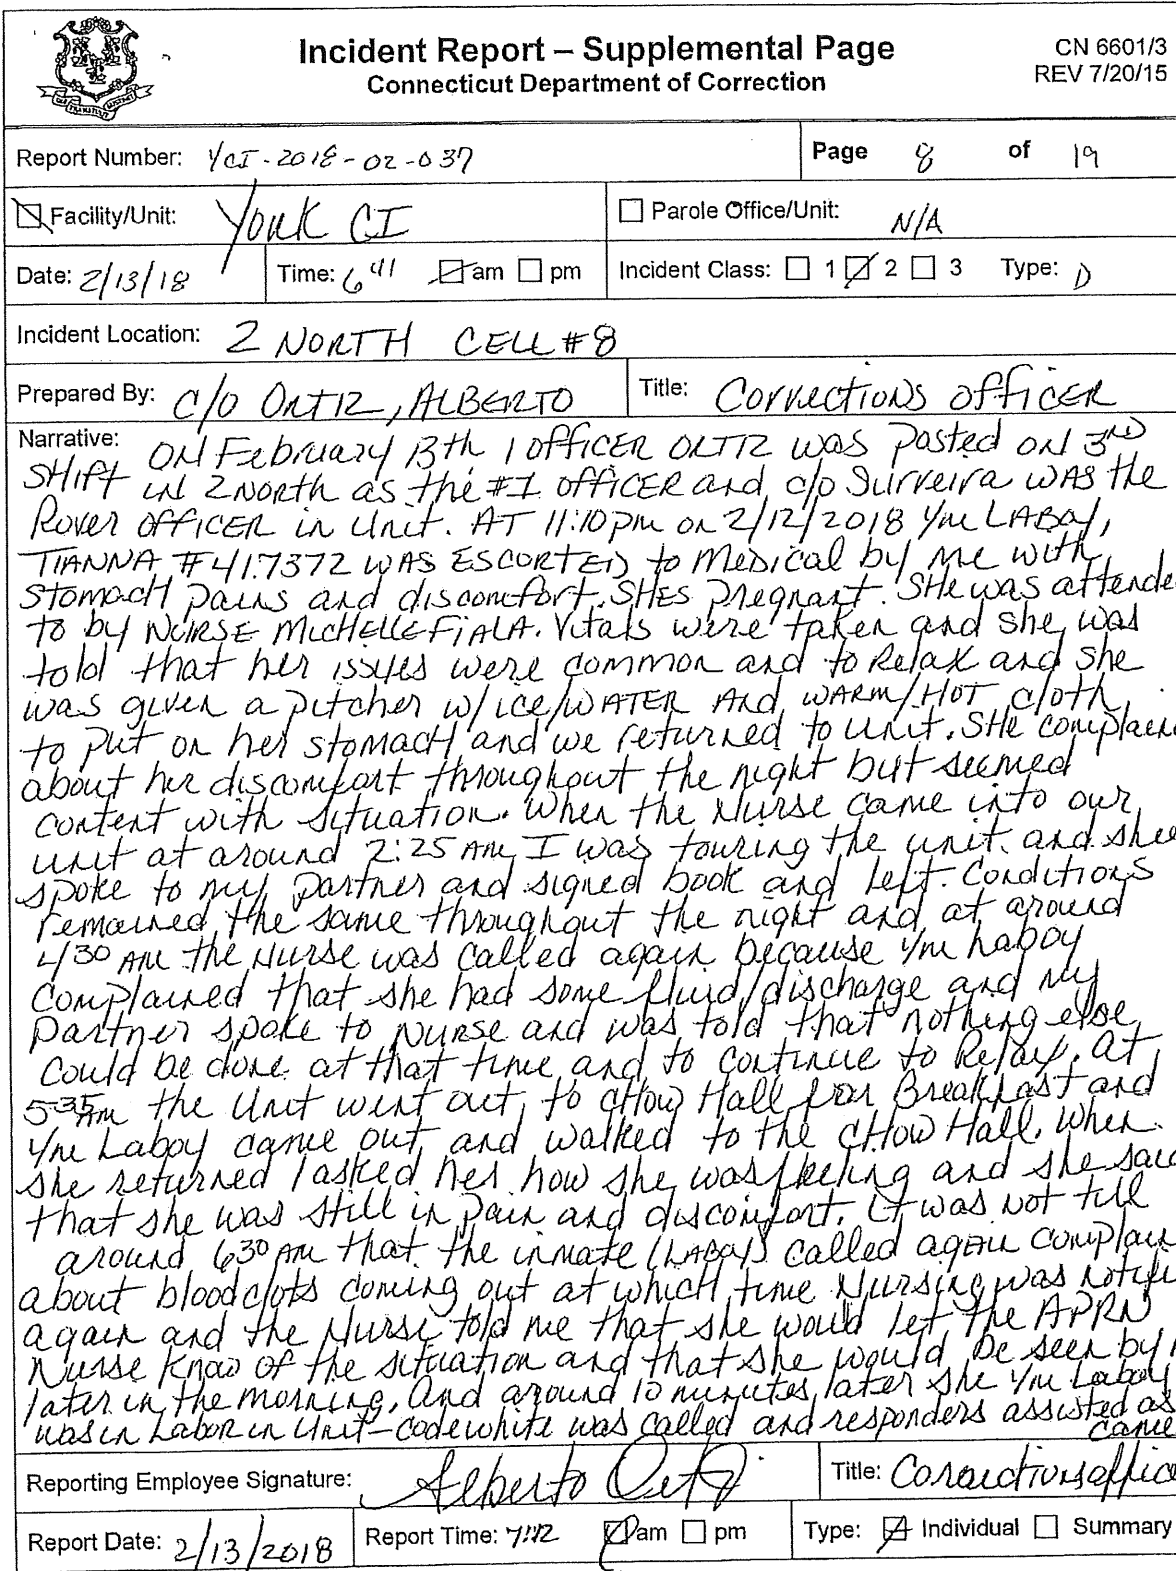 Incident Report – Supplemental Page
Connecticut Department of Correction
CN 6601/3
REV 7/20/15
Report Number: YCI-2018-02-037
Page 8 of 19
Facility/Unit: York CI
Parole Office/Unit: N/A
Date: 2/13/18
Time: 6 41 am pm
Incident Class: 1 2 3 Type: D
Incident Location: 2 NORTH CELL #8
Prepared By: C/O ORTIZ, ALBERTO
Title: Corrections Officer
Narrative: ON February 13th I OFFICER ORTIZ was posted ON 3RD
SHIFT in 2 North as the #1 OFFICER and c/o Surveira WAS the
Rover OFFICER in Unit. AT 11:10 pm on 2/12/2018 I/m LABOY,
TIANNA #417372 WAS ESCORTED to Medical by me with
Stomach pains and discomfort. SHES Pregnant. SHe was attende
to by NURSE MICHELLE FIALA. Vitals were taken and she was
told that her issues were common and to Relax and she
was given a pitcher w/ice/WATER AND WARM/HOT cloth
to put on her stomach and we returned to Unit. SHe complaine
about her discomfort throughout the night but seemed
content with situation. When the Nurse came into our
unit at around 2:25 AM I was touring the unit and shee
spoke to my partner and signed book and left. Conditions
remained the same throughout the night and at around
430 AM the Nurse was called again because I/m Laboy
complained that she had some fluid/discharge and my
partner spoke to Nurse and was told that nothing else
could be done at that time and to continue to Relax. At
535 Am the Unit went out to CHow Hall for Breakfast and
I/m Laboy came out and walked to the CHow Hall. When
she returned I asked her how she was feeling and she said
that she was still in pain and discomfort. It was not till
around 630 AM that the inmate (LABOY) called again complain
about bloodclots coming out at which time Nursing was notifie
again and the Nurse told me that she would let the APRN
Nurse know of the situation and that she would be seen by
later in the morning. And around 10 minutes later she I/m Laboy
was in Labor in Unit - code white was called and responders assisted as
came
Reporting Employee Signature: Alberto Ortiz
Title: Corrections office
Report Date: 2/13/2018
Report Time: 7:42 am pm
Type: Individual Summary